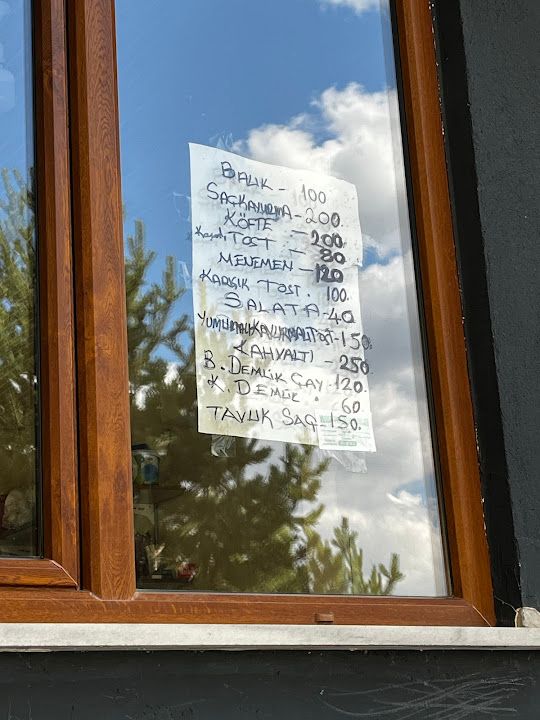 BALIK - 100
SAÇKAVURMA - 200
KÖFTE - 200
Kaşarlı TOST - 80
MENEMEN - 120
KARIŞIK TOST . 100
SALATA - 40
KAVURMALI TOST - 150
KAHVALTI - 250
B. DEMLİK ÇAY - 120
K. DEMLİK . 60
TAVUK SAÇ - 150.